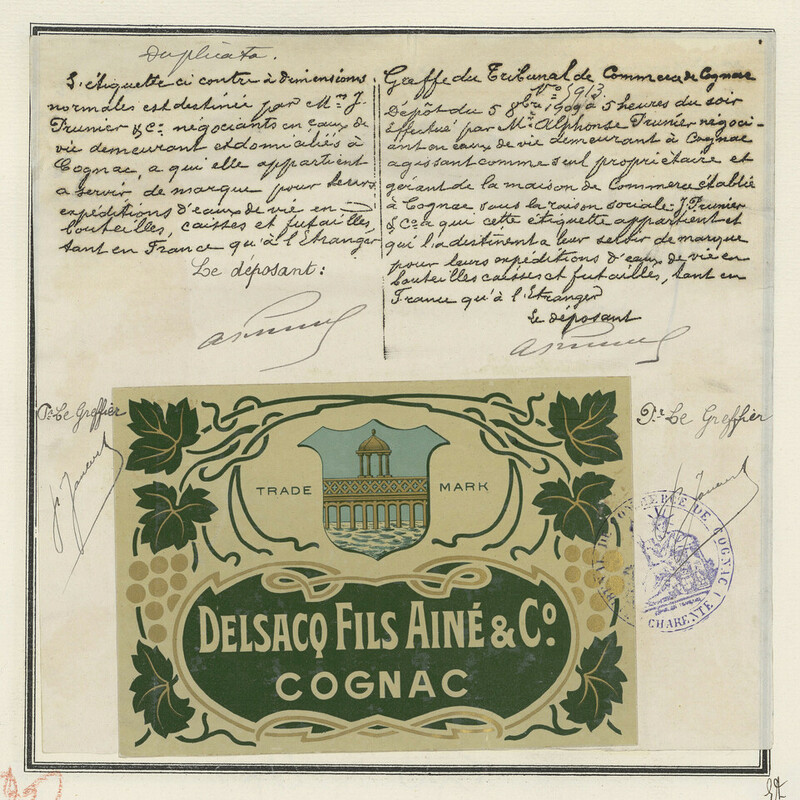 Duplicata.
L'étiquette ci contre à dimensions
normales est destinée par Mrs J.
Prunier & Co. négociants en eaux de
vie demeurant et domiciliés à
Cognac, a qui elle appartient
a servir de marque pour leurs
expéditions d'eaux de vie en
bouteilles, caisses et futailles,
tant en France qu'à l'Etranger
Le déposant:
Greffe du Tribunal de Commerce de Cognac
No 5913.
Dépôt du 5 8bre 1909 à 5 heures du soir
Effectué par Mr Alphonse Prunier négoci-
ant en eaux de vie demeurant à Cognac
agissant comme seul propriétaire et
gérant de la maison de Commerce établie
à Cognac sous la raison sociale J. Prunier
& Co a qui cette étiquette appartient et
qui la destinent a leur servir de marque
pour leurs expéditions d'eaux de vie en
bouteilles caisses et futailles, tant en
France qu'à l'Etranger
Le déposant
Pr Le Greffier
Pr Le Greffier
TRADE MARK
DELSACQ FILS AINÉ & Co.
COGNAC
TRIBUNAL DE COMMERCE DE COGNAC
CHARENTE